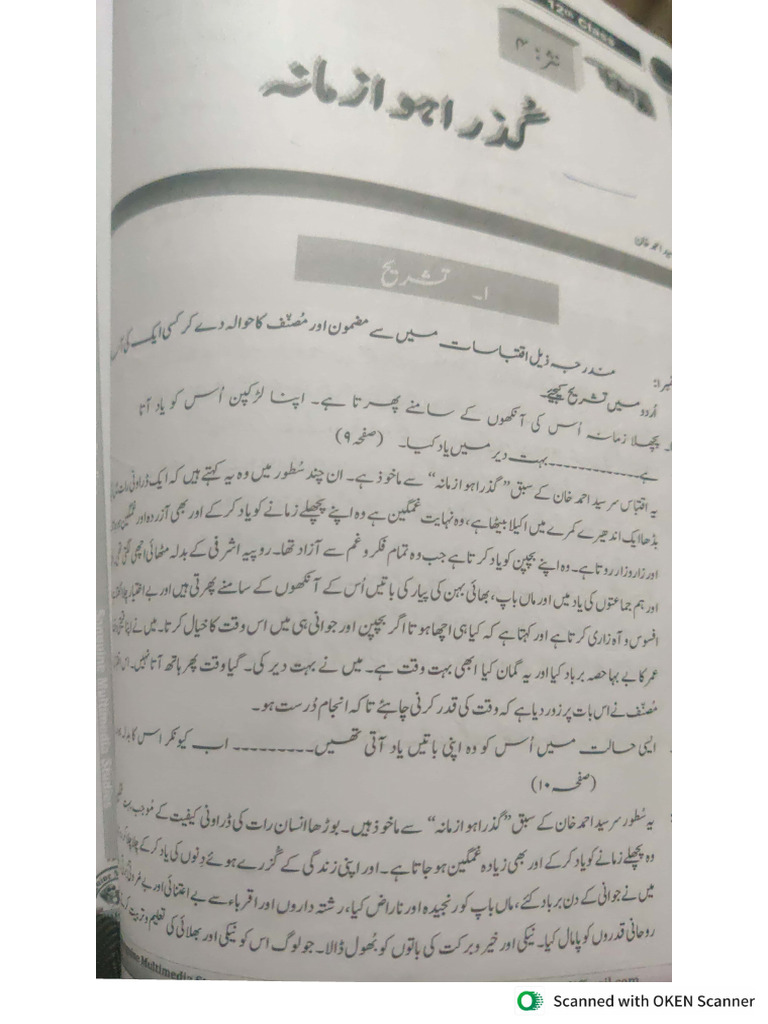 12th Class
نثر: ۴
گذرا ہوا زمانہ
احمد خان
۱۔ تشریح
مندرجہ ذیل اقتباسات میں سے مضمون اور مُصنّف کا حوالہ دے کر کسی ایک کی
اُردو میں تشریح کیجیے
پچھلا زمانہ اُس کی آنکھوں کے سامنے پھرتا ہے۔ اپنا لڑکپن اُس کو یاد آتا
ہے۔۔۔۔۔۔۔۔۔۔بہت دیر میں یاد کیا۔ (صفحہ ۹)
یہ اقتباس سر سید احمد خان کے سبق "گذرا ہوا زمانہ" سے ماخوذ ہے۔ ان چند سُطور میں وہ یہ کہتے ہیں کہ ایک ڈراونی رات
بڈھا ایک اندھیرے کمرے میں اکیلا بیٹھا ہے، وہ نہایت غمگین ہے وہ اپنے پچھلے زمانے کو یاد کر کے اور بھی آزردہ اور غمگین
اور زار و زار روتا ہے۔ وہ اپنے بچپن کو یاد کرتا ہے جب وہ تمام فکر و غم سے آزاد تھا۔ روپیہ اشرفی کے بدلہ مٹھائی اچھی لگتی تھی
اور ہم جماعتوں کی یاد میں اور ماں باپ، بھائی بہن کی پیار کی باتیں اُس کے آنکھوں کے سامنے پھرتی ہیں اور بے اختیار
افسوس و آہ زاری کرتا ہے اور کہتا ہے کہ کیا ہی اچھا ہوتا اگر بچپن اور جوانی ہی میں اس وقت کا خیال کرتا۔ میں نے اپنا
عمر کا بے بہا حصہ برباد کیا اور یہ گمان کیا ابھی بہت وقت ہے۔ میں نے بہت دیر کی۔ گیا وقت پھر ہاتھ آتا نہیں۔ اس
مُصنّف نے اس بات پر زور دیا ہے کہ وقت کی قدر کرنی چاہئے تاکہ انجام دُرست ہو۔
ایسی حالت میں اُس کو وہ اپنی باتیں یاد آتی تھیں۔۔۔۔۔۔۔۔۔ اب کیونکر اس کا بدلہ ہو
(صفحہ ۱۰)
یہ سُطور سر سید احمد خان کے سبق "گذرا ہوا زمانہ" سے ماخوذ ہیں۔ بوڑھا انسان رات کی ڈراونی کیفیت کے مُوجب
وہ پچھلے زمانے کو یاد کر کے اور بھی زیادہ غمگین ہو جاتا ہے۔ اور اپنی زندگی کے گُزرے ہوئے دِنوں کی یاد کر کے
میں نے جوانی کے دن برباد کئے، ماں باپ کو رنجیدہ اور ناراض کیا، رشتہ داروں اور اقرباء سے بے اعتنائی اور بے مروتی
روحانی قدروں کو پامال کیا۔ نیکی اور خیر و برکت کی باتوں کو بُھول ڈالا۔ جو لوگ اس کو نیکی اور بھلائی کی تعلیم و تربیت
Multimedia
Scanned with OKEN Scanner